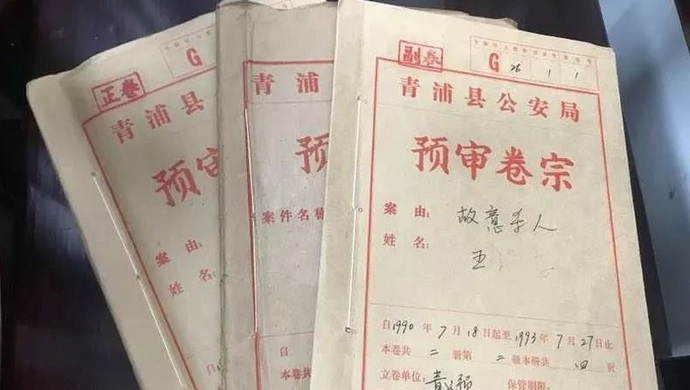 正卷
G
青浦县公安局
预审
案由:
姓名:
G
青浦县
预
案件名称
自
副卷
G 26 1 1
青浦县公安局
预审卷宗
案由: 故意杀人
姓名: 王
自1990年7月18日起至1993年7月27日止
本卷共二册第二册本册共四页
立卷单位: 青公预
保管期限: